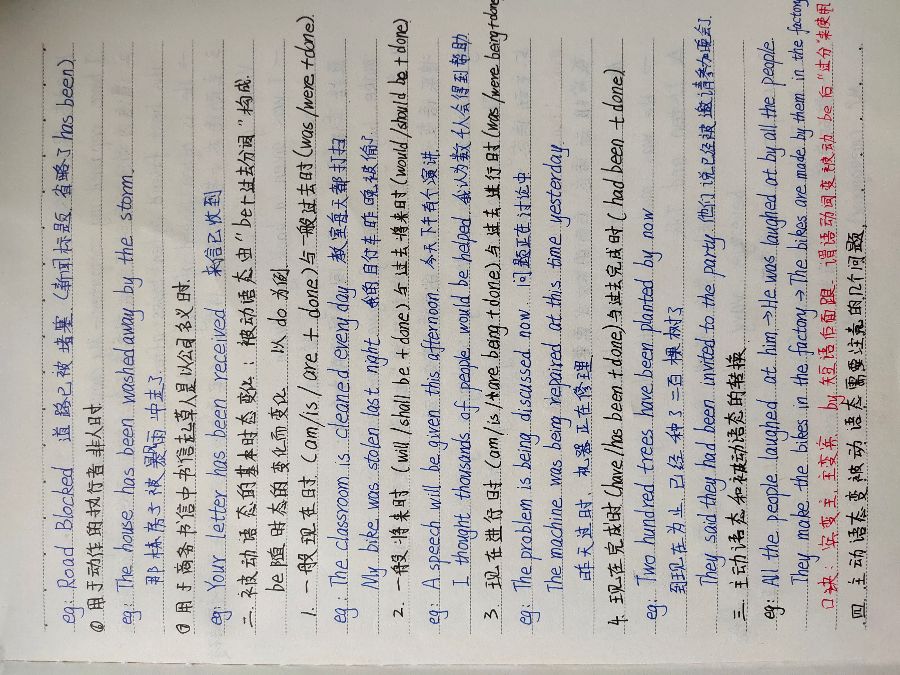 eg: Road Blocked 道路已被堵塞 (新闻标题,省略了has been)
⑥ 用于动作的执行者非人时
eg: The house has been washed away by the storm.
那栋房子被暴雨冲走了
⑦ 用于商务书信中书信起草人是以公司名义时
eg: Your letter has been received 来信已收到
二.被动语态的基本时态变化:被动语态由“be+过去分词”构成.
be随时态的变化而变化 以do为例.
1. 一般现在时 (am/is/are + done)与一般过去时(was/were+done).
eg: The classroom is cleaned every day 教室每天都打扫
My bike was stolen last night 我的自行车昨晚被偷了
2. 一般将来时 (will/shall be + done)与过去将来时(would/should be + done)
eg: A speech will be given this afternoon 今天下午有个演讲
I thought thousands of people would be helped 我认为数千人会得到帮助
3 现在进行时(am/is/are being+done)与过去进行时(was/were being+done
eg: The problem is being discussed now 问题正在讨论中
The machine was being repaired at this time yesterday
昨天这时,机器正在修理
4. 现在完成时(have/has been+done)与过去完成时(had been +done)
eg: Two hundred trees have been planted by now
到现在为止已经种了二百棵树了
They said they had been invited to the party 他们说已经被邀请参加晚会了
三 主动语态和被动语态的转换
eg: All the people laughed at him→He was laughed at by all the people.
They make the bikes in the factory→The bikes are made by them in the factory
口诀:宾变主 主变宾 by短语后面跟 谓语动词变被动 be后“过分”来使用
四.主动语态变被动语态需要注意的几个问题